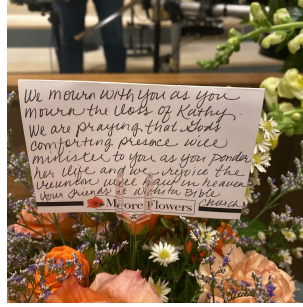 We mourn with you as you
mourn the loss of Kathy.
We are praying that God's
comforting presence will
minister to you as you ponder
her life and we rejoice the
reunion we'll have in heaven
Your friends at Wichita Bible
Church
Moore Flowers